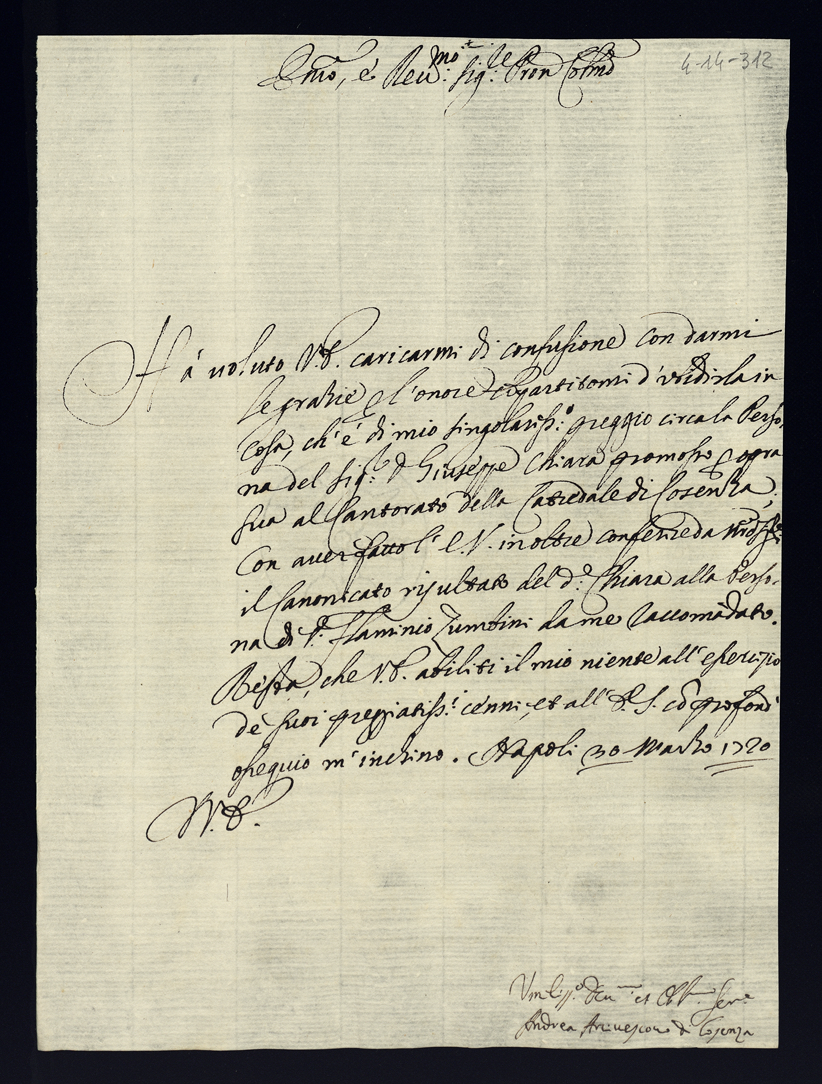 Emo, e Reu.mo Sig.re Pron Colmo
4-14-312
Há voluto V.E. caricarmi di confusione con darmi
le grazie, e l'onore compartitomi d'
cosa, ch'è di mio singolariss.o preggio circa la Perso,
na del Sig.r D. Giuseppe Chiara promosso opra
sua al Cantorato della Catedale di Cosenza,
con auer fatto l'E.V. inoltre conferire da
il Canonicato risultato del d.o Chiara alla Perso-
na di D. Flaminio Zumbini da me raccomãdato.
Resta, che V.E. abiliti il mio niente all'esercizio
de' suoi preggiatiss.i cenni, et all'E.S. cõ profond
osequio m'inchino. Napoli 30 Marzo 1720
V.E.
Vmiliss.o Deu et Obl. Ser.e
Andrea Arciuescouo di Cosenza